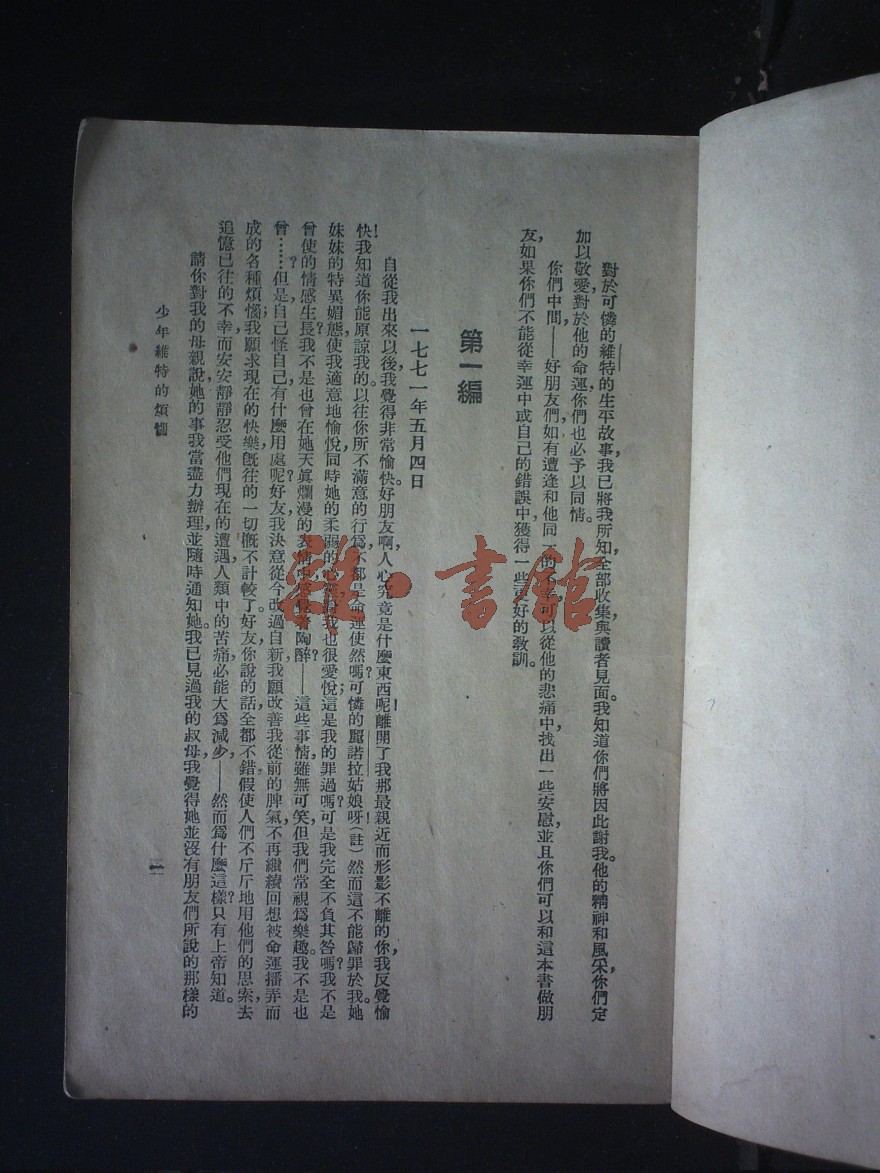 對於可憐的維特的生平故事，我已將我所知，全部收集，與讀者見面。我知道你們將因此謝我。他的精神和風采，你們定
加以敬愛，對於他的命運，你們也必予以同情。
你們中間——好朋友們，如有遭逢和他同一的不幸，可以從他的悲痛中，找出一些安慰，並且你們可以和這本書做朋
友，如果你們不能從幸運中或自己的錯誤中獲得一些更好的教訓。
第一編
一七七一年五月四日
自從我出來以後，我覺得非常愉快。好朋友啊，人心究竟是什麼東西呢！離開了我那最親近而形影不離的你，我反覺愉
快！我知道你能原諒我的。以往你所不滿意的行爲，不都是命運使然嗎？可憐的麗諾拉姑娘呀！（註）然而這不能歸罪於我。她
妹妹的特異媚態，使我適意地愉悅，同時她的柔弱的心，對我也很愛悅；這是我的罪過嗎？可是我完全不負其咎嗎？我不是
曾使的情感生長？我不是也曾在她天眞爛漫的表情中感覺着陶醉？——這些事情，雖無可笑，但我們常視爲樂趣。我不是也
曾……？但是，自己怪自己，有什麼用處呢？好友，我決意從今改過自新，我願改善我從前的脾氣，不再繼續回想被命運播弄而
成的各種煩惱；我願求現在的快樂，旣往的一切，概不計較了。好友，你說的話，全都不錯，假使人們不斤斤地用他們的思索，去
追憶已往的不幸，而安安靜靜忍受他們現在的遭遇，人類中的苦痛，必能大爲減少——然而爲什麼這樣？只有上帝知道。
請你對我的母親說，她的事我當盡力辦理，並隨時通知她。我已見過我的叔母，我覺得她並沒有朋友們所說的那樣的
少年維特的煩惱
一
雜·書館